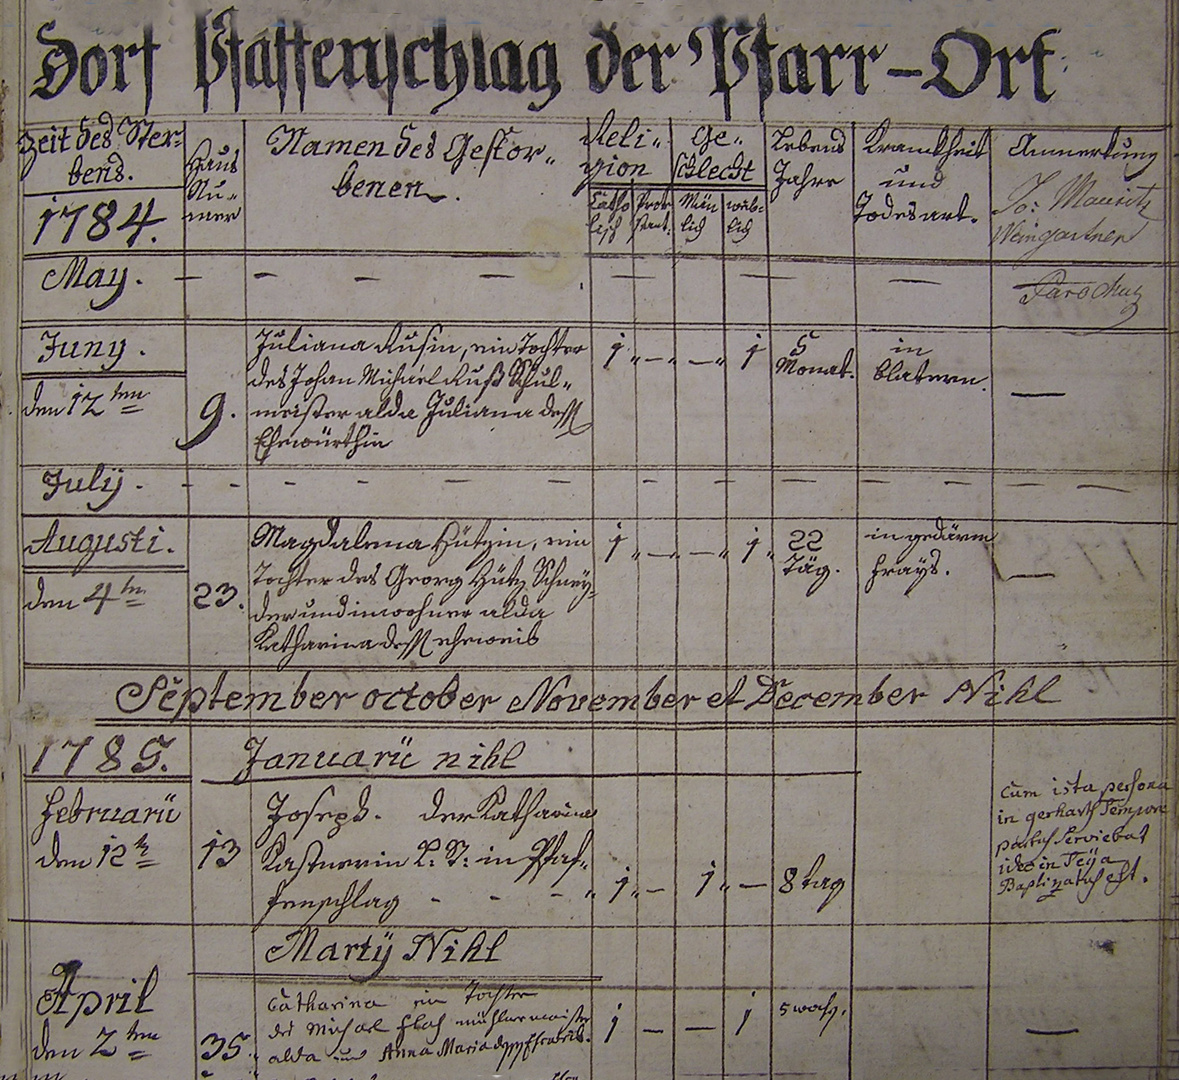 Dorf Pfaffenschlag der Pfarr-Ort
Zeit des Ster-
bens.
1784.
Haus
Nu-
mer
Namen des Gestor-
benen.
Reli-
gion
Catho
lisch
Prot
stant.
Ge-
schlecht
Män
lich
weib-
lich
Lebens
Jahre
Krankheit
und
Todesart.
Anmerkung
Jo: Mauritz
Weingartner
Parochus
May. - - - - - - - - -
Juny.
den 12ten
9.
Juliana Rusin, ein Tochter
des Johan Michael Ruß Schul-
meister alda Juliana dess
Ehewürthin
1 „ - „ - „ 1
5
Monat.
in
blatern.
—
July. - - - - - - - - -
Augusti.
den 4ten
23.
Magdalena Hützin, ein
Tochter des Georg Hütz Schney-
der und inwohner alda
Katharina dess eheweib
1 „ - „ - „ 1 „
22
Täg.
in gedärm
frays.
—
September october November et December Nihl
1785. Januarii nihl
Februarii
den 12t
13
Joseph. der Katharina
Kastnerin L: St: in Pfaf-
fenschlag - - - „
1 „ - 1 „ -
8 tag
Cum ista persona
in gerharts Tempore
partus Serviebat
ideo in Teÿa
Baptizatus est.
Martÿ Nihl
April
den 2ten
35.
Catharina ein Tochter
des Michael Flach müllermeister
alda und Anna Maria dess Eheweib.
1 - - 1
5 woch.
—